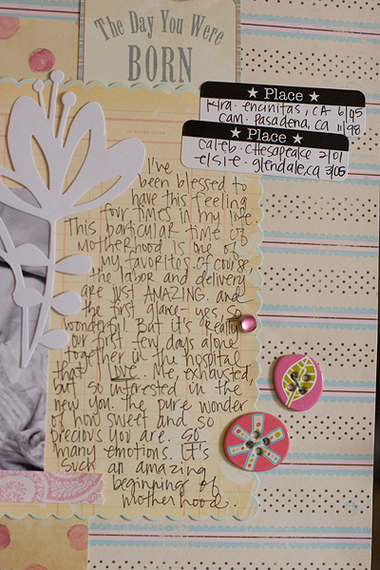 The Day You Were
BORN
★ Place ★
Kira · encinitas, CA 6/05
Cam · Pasadena, CA 11/98
★ Place ★
caleb · chesapeake 2/01
elsie · glendale, ca 3/05
I've
been blessed to
have this feeling
four times in my life.
This particular time of
motherhood is one of
my favorites. of course,
the labor and delivery
are just AMAZING. and
the first glance - yes, so
wonderful. But it's really
our first few days alone
together in the hospital
that I love. Me, exhausted,
but so intrested in the
new you. The pure wonder
of how sweet and so
precious you are. so
many emotions. It's
such an amazing
beginning of
motherhood.